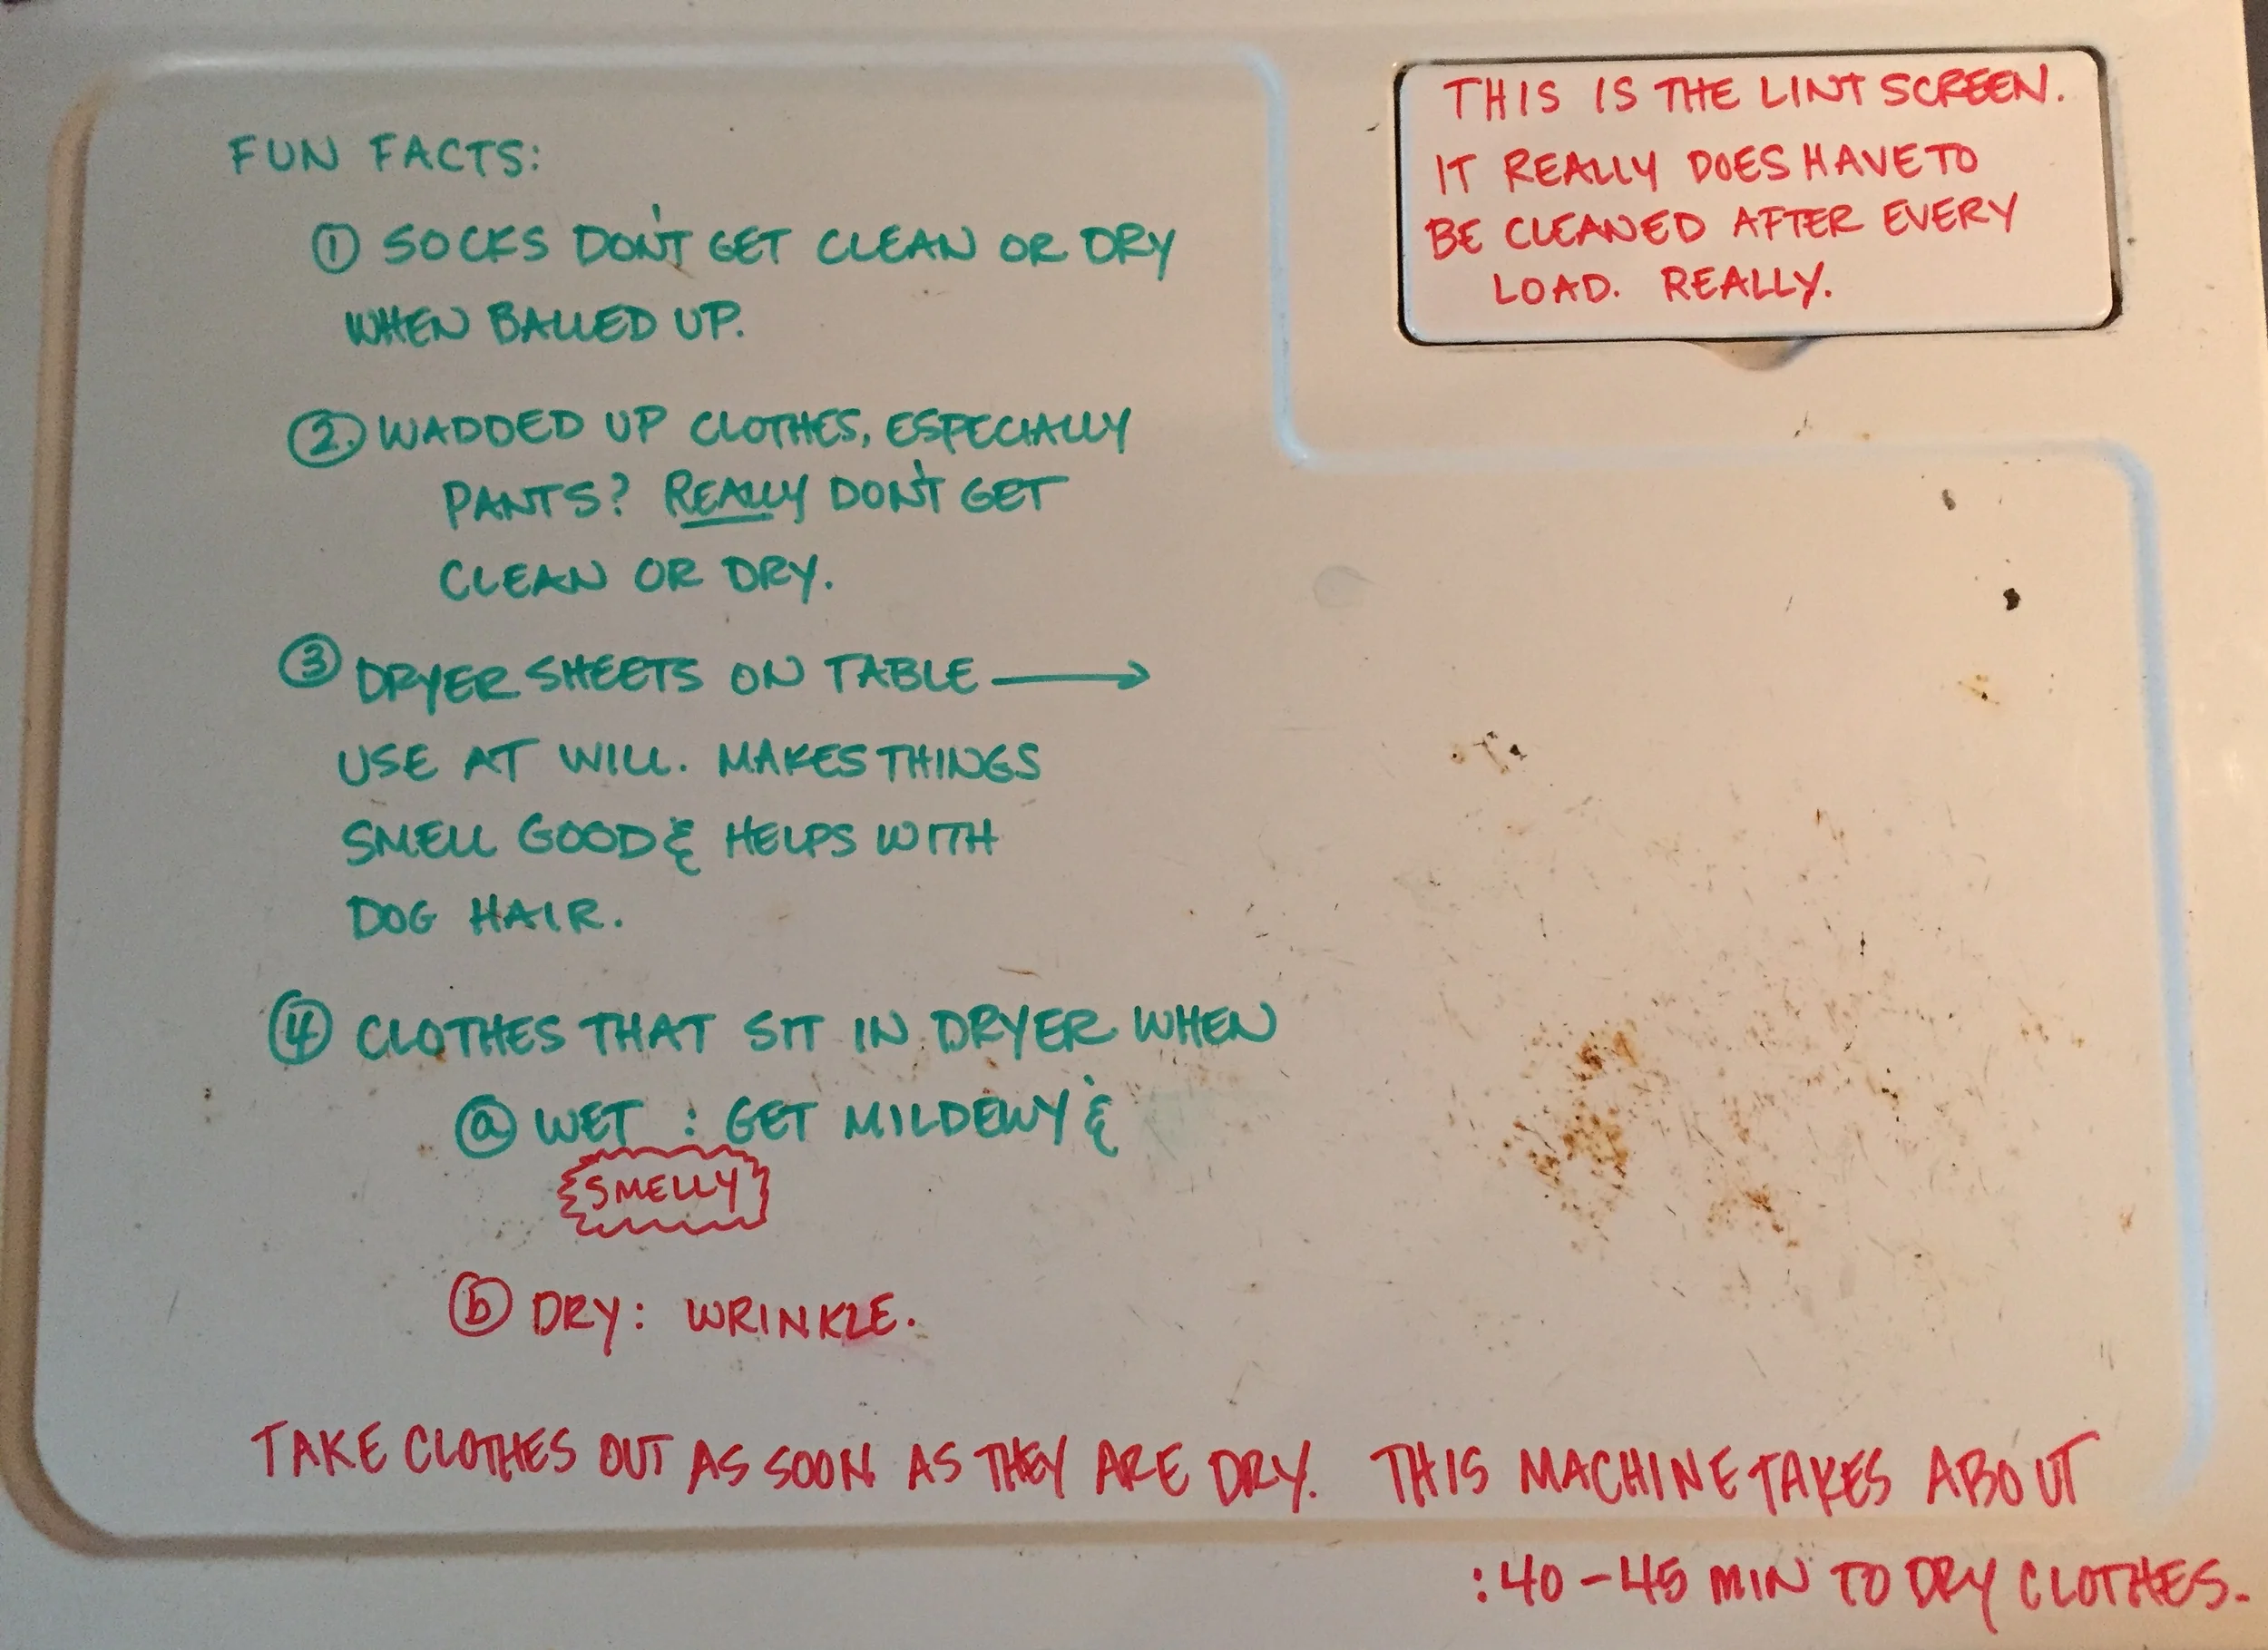 FUN FACTS:
① SOCKS DON'T GET CLEAN OR DRY
WHEN BALLED UP.
② WADDED UP CLOTHES, ESPECIALLY
PANTS? REALLY DON'T GET
CLEAN OR DRY.
③ DRYER SHEETS ON TABLE →
USE AT WILL. MAKES THINGS
SMELL GOOD & HELPS WITH
DOG HAIR.
④ CLOTHES THAT SIT IN DRYER WHEN
ⓐ WET : GET MILDEWY &
SMELLY
ⓑ DRY: WRINKLE.
TAKE CLOTHES OUT AS SOON AS THEY ARE DRY. THIS MACHINE TAKES ABOUT
:40-45 MIN TO DRY CLOTHES.
THIS IS THE LINT SCREEN.
IT REALLY DOES HAVE TO
BE CLEANED AFTER EVERY
LOAD. REALLY.